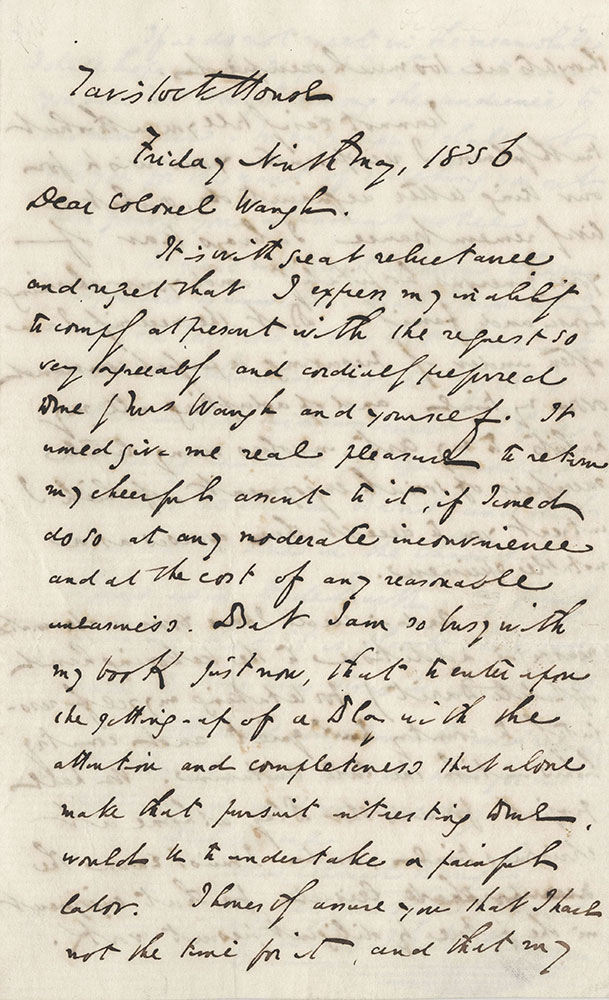 Tavistock House
Friday Ninth May, 1856
Dear Colonel Waugh.
It is with great reluctance
and regret that I express my inability
to comply at present with the request so
very agreeably and cordially preferred
to me by Mrs Waugh and yourself. It
would give me real pleasure to return
my cheerful assent to it, if I could
do so at any moderate inconvenience
and at the cost of any reasonable
uneasiness. But I am so busy with
my book just now, that to enter upon
the getting-up of a Play with the
attention and completeness that alone
make that pursuit interesting to me,
would be to undertake a painful
labor. I honestly assure you that I have
not the time for it, and that my